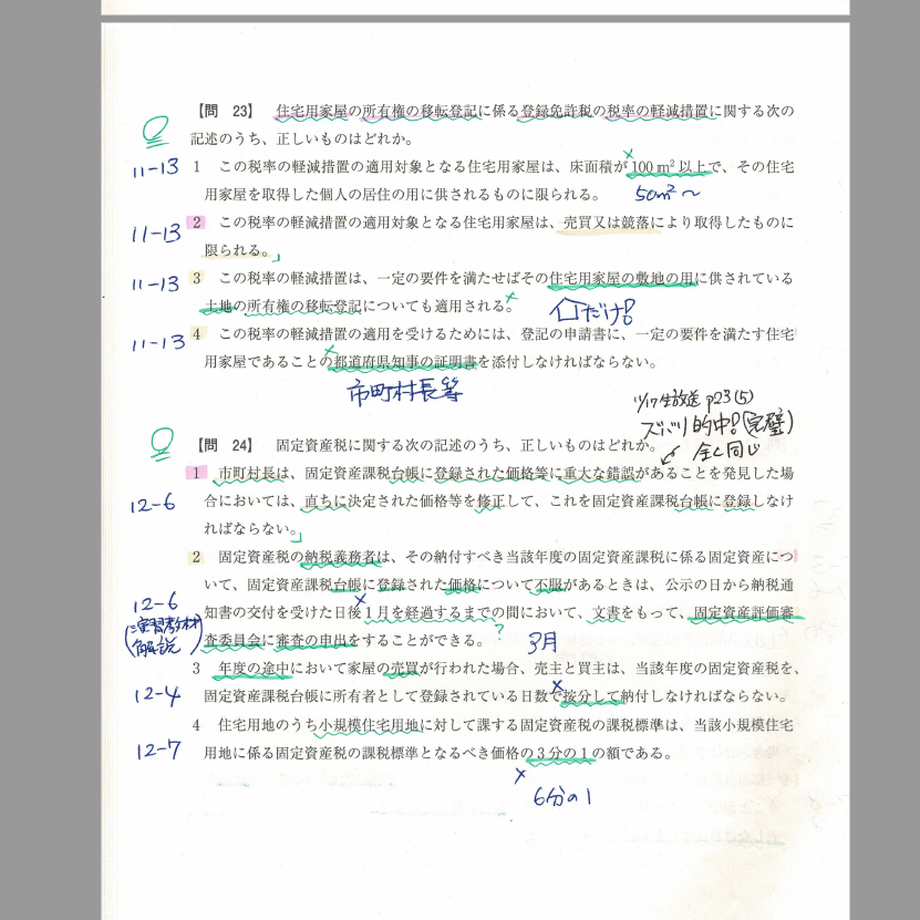 【問 23】 住宅用家屋の所有権の移転登記に係る登録免許税の税率の軽減措置に関する次の
記述のうち、正しいものはどれか。
11-13 1 この税率の軽減措置の適用対象となる住宅用家屋は、床面積が100m²以上で、その住宅
用家屋を取得した個人の居住の用に供されるものに限られる。 50㎡〜
11-13 2 この税率の軽減措置の適用対象となる住宅用家屋は、売買又は競落により取得したものに
限られる。
11-13 3 この税率の軽減措置は、一定の要件を満たせばその住宅用家屋の敷地の用に供されている
土地の所有権の移転登記についても適用される。
だけ!
11-13 4 この税率の軽減措置の適用を受けるためには、登記の申請書に、一定の要件を満たす住宅
用家屋であることの都道府県知事の証明書を添付しなければならない。
市町村長等
11/17生放送 p23(5)
ズバリ的中!(完璧)
全く同じ
【問 24】 固定資産税に関する次の記述のうち、正しいものはどれか。
1 市町村長は、固定資産課税台帳に登録された価格等に重大な錯誤があることを発見した場
12-6 合においては、直ちに決定された価格等を修正して、これを固定資産課税台帳に登録しなけ
ればならない。
2 固定資産税の納税義務者は、その納付すべき当該年度の固定資産課税に係る固定資産につ
いて、固定資産課税台帳に登録された価格について不服があるときは、公示の日から納税通
12-6 知書の交付を受けた日後1月を経過するまでの間において、文書をもって、固定資産評価審
査委員会に審査の申出をすることができる。 ? 3月
(演習教材
解説)
3 年度の途中において家屋の売買が行われた場合、売主と買主は、当該年度の固定資産税を、
12-4 固定資産課税台帳に所有者として登録されている日数で按分して納付しなければならない。
4 住宅用地のうち小規模住宅用地に対して課する固定資産税の課税標準は、当該小規模住宅
12-7 用地に係る固定資産税の課税標準となるべき価格の3分の1の額である。
6分の1